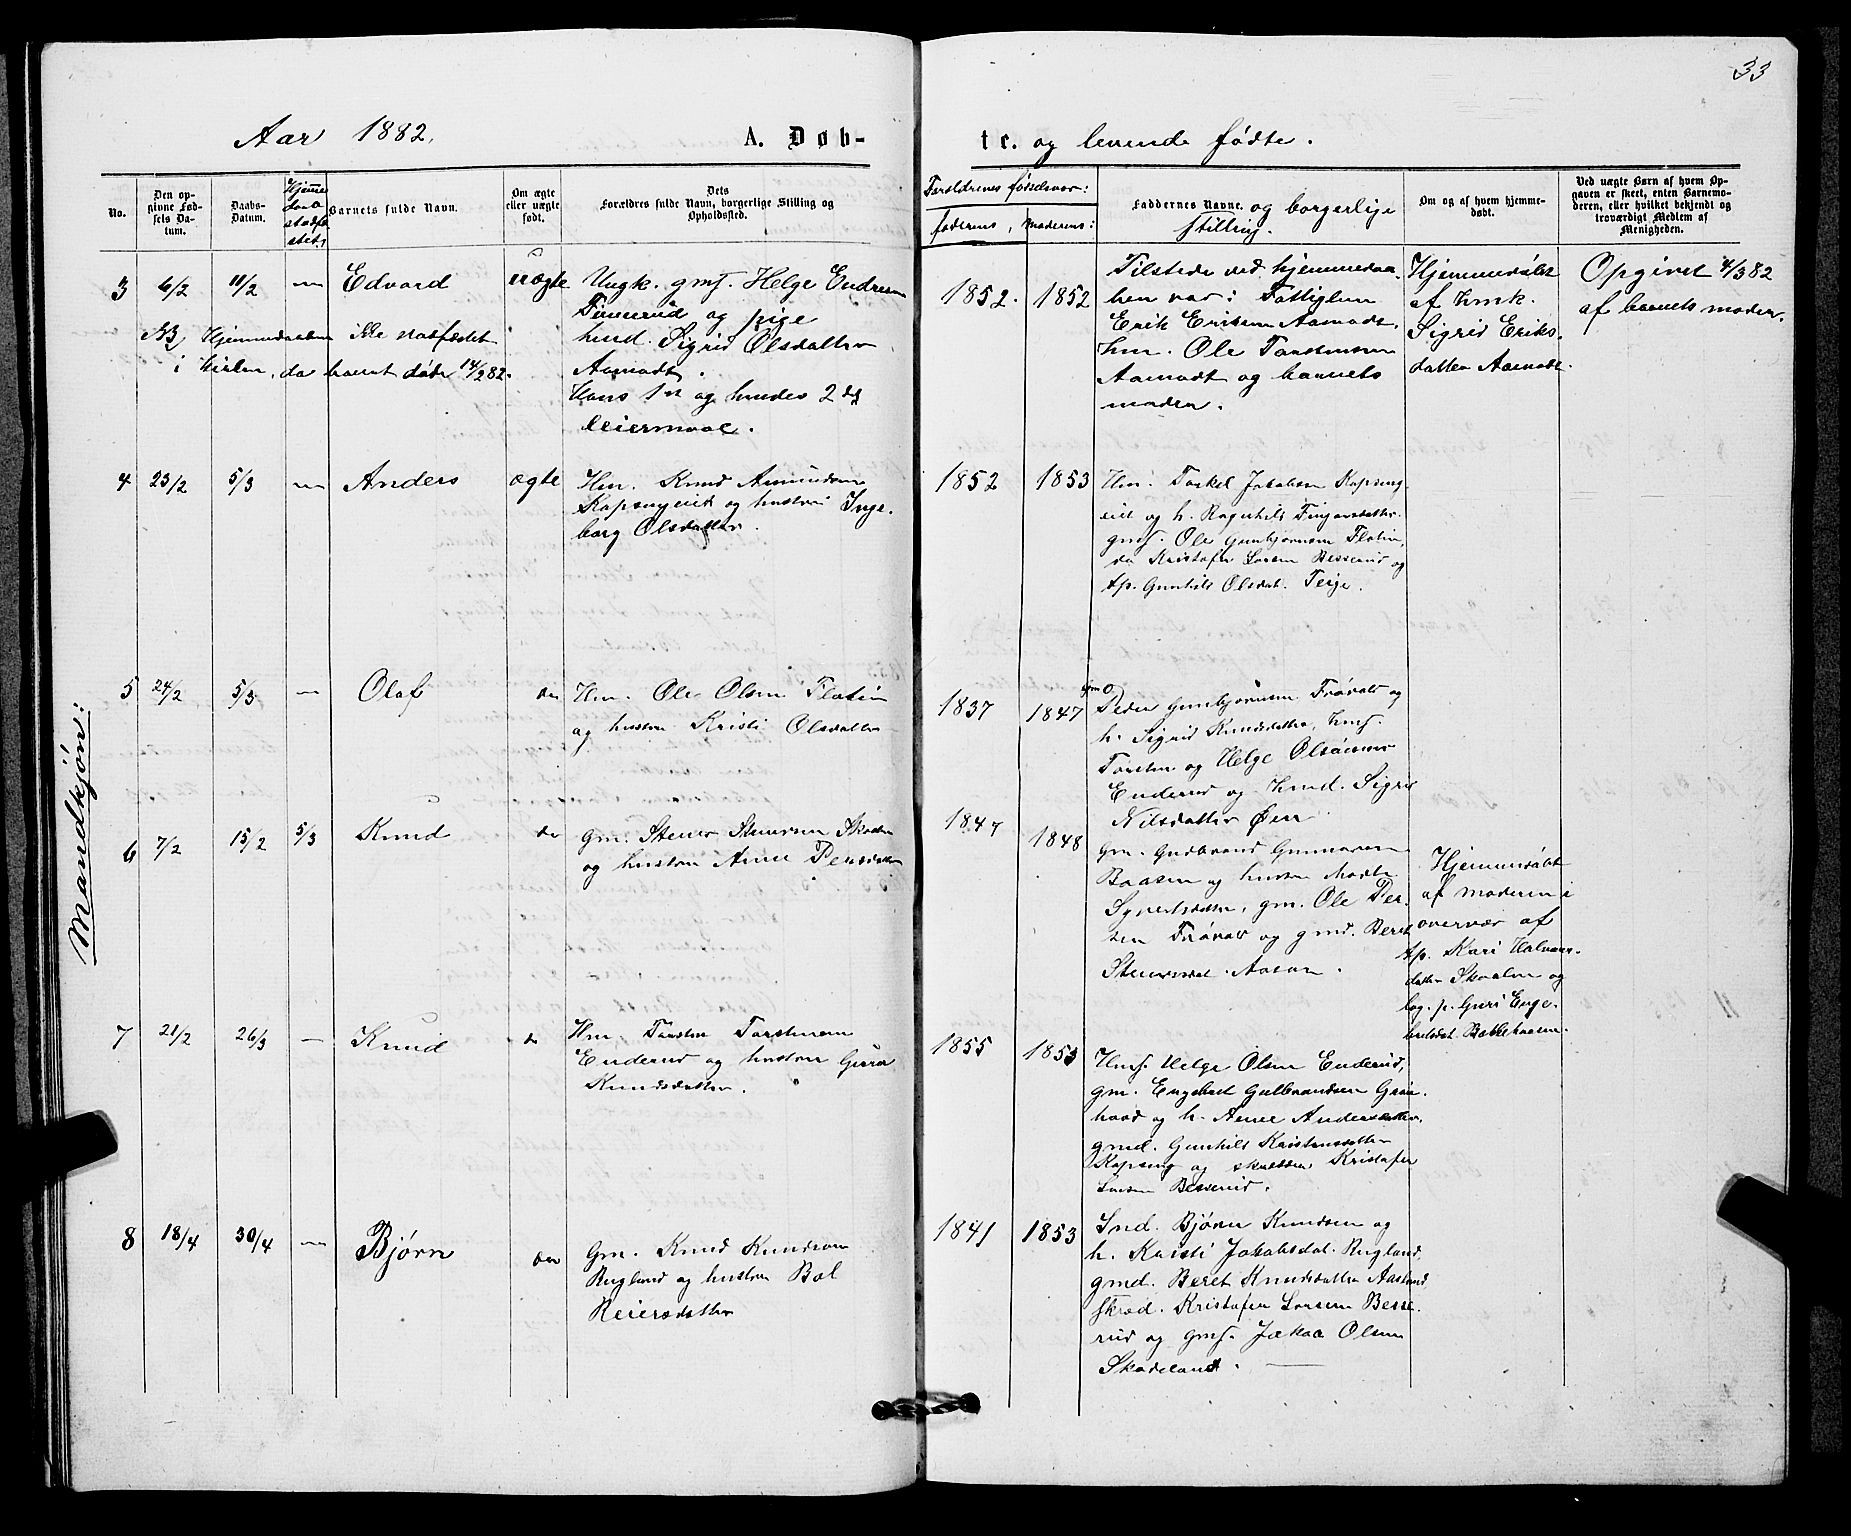 33
Aar 1882.
A. Døb-
te. og levende fødte.
No.
Den op-
givne Fød-
sels Da-
tum.
Daabs-
Datum.
Hjemme
daab
stadfæ
stet
Barnets fulde Navn.
Om ægte
eller uægte
født.
Dets
Forældres fulde Navn, borgerlige Stilling og
Opholdssted.
Forældrenes fødselsaar:
faderens, moderens:
Faddernes Navne. og borgerlige
stilling.
Om og af hvem hjemme-
døbt.
Ved uægte Børn af hvem Op-
gaven er skeet, enten Barnemo-
deren, eller hvilket bekjendt og
troværdigt Medlem af
Menigheden.
Mandkjøn:
3 6/2 11/2 — Edvard uægte
Ungk. gmf. Helge Endresen
og pige
hmd. Sigrid Olsdatter
Aamodt.
Hans 1n og hendes 2d
leiermaal.
NB Hjemmedaaben ikke stadfæstet
i kirken, da barnet døde 14/2 82.
1852. 1852
Tilstede ved hjemmedaa-
ben var: Fattiglem
Erik Eriksen Aamodt,
hm. Ole Torstensen
Aamodt og barnets
moder.
Hjemmedøbt
af hmk.
Sigrid Eriks-
datter Aamodt.
Opgivet 4/3 82
af barnets moder.
4 23/2 5/3 — Anders ægte
Hm. Knud Amundsen
Kapsengeiet og hustru Inge-
borg Olsdatter.
1852 1853
Hm. Torkel Jakobsen Kapseng-
eiet og h. Ragnhild Fingarsdatter
gmf. Ole Gunbjørnsen Flatin,
Kristofer Larsen Besserud og
tp. Gunhild Olsdat. Teige.
5 24/2 5/3 — Olaf do
Hm. Ole Olsen Flatin
og hustru Kristi Olsdatter
1837 1847
gm Peder Gunbjørnsen Frøvold og
h. Sigrid Knudsdatter, hmf.
Torsten og Helge Olssønner
Enderud og hmd. Sigrid
Nilsdatter Øen
6 7/2 15/2 5/3 Knud do
gm. Stener Stenersen
og hustru Anne Persdatter
1847 1848
gm. Gudbrand Gunnarsen
Baasen og hustru
Syvertsdatter, gm. Ole Per-
sen Frøvold og gmd. Beret
Stenersdat. Aasen.
Hjemmedøbt
af moderen i
overvær af
tp. Kari Halvors-
datter Skaalen og
p. Guri Enge-
bretsdat. Bakkehaugen.
7 21/2 26/3 — Knud do
Hm. Torsten Torstensen
Enderud og hustru Guro
Knudsdatter.
1855 1853
Hmf. Helge Olsen Enderud,
gm. Engebret Gulbrandsen Grøn-
hovd og h. Anne Andersdatter,
gmd. Gunhild Kristensdatter
Kapseng og skrædder Kristofer
Larsen Besserud.
8 18/4 30/4 — Bjørn do
Gm. Knud Knudsen
Rugland og hustru Bol
Reiersdatter
1841 1853
Ind. Bjørn Knudsen og
h. Kristi Jakobsdat. Rugland,
gmd. Beret Knudsdatter Aasland,
skræd. Kristofer Larsen Besse-
rud og gmf. Jakob Olsen
Skadeland.